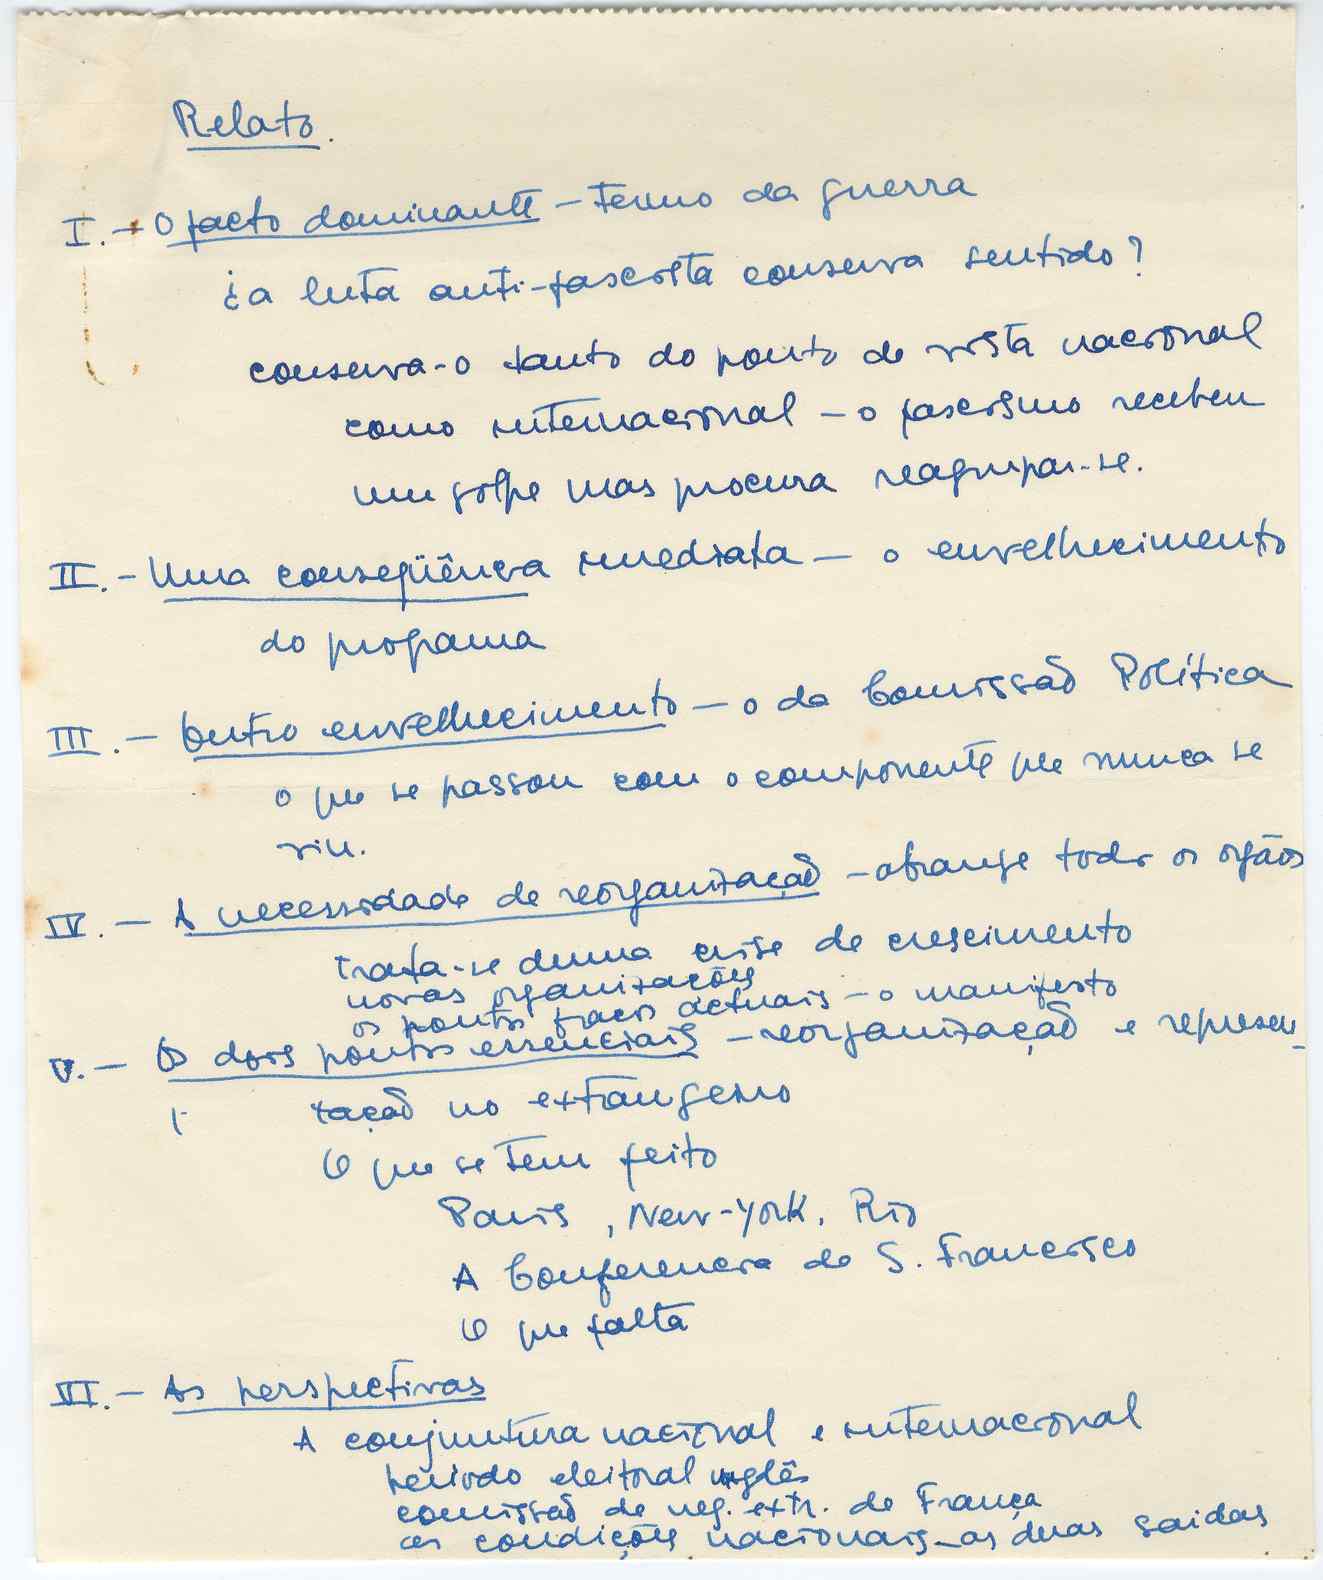 Relato.
I. - O facto dominante - Termo da guerra
¿a luta anti-fascista conserva sentido?
conserva-o tanto do ponto de vista nacional
como internacional - o fascismo recebeu
um golpe mas procura reagrupar-se.
II. - Uma conseqüência imediata - o envelhecimento
do programa
III. - Outro envelhecimento - o da Comissão Política
o que se passou com o componente que nunca se
viu.
IV. - A necessidade de reorganização - abrange todos os orgãos
trata-se duma crise de crescimento
novas organizações
os pontos fracos actuais - o manifesto
V. - Os dois pontos essenciais - reorganização e represen-
tação no extrangeiro
O que se tem feito
Paris, New-York, Rio
A Conferencia de S. Francisco
O que falta
VI. - As perspectivas
A conjuntura nacional e internacional
periodo eleitoral inglês
comissão de neg. extr. de França
as condições nacionais - as duas saidas